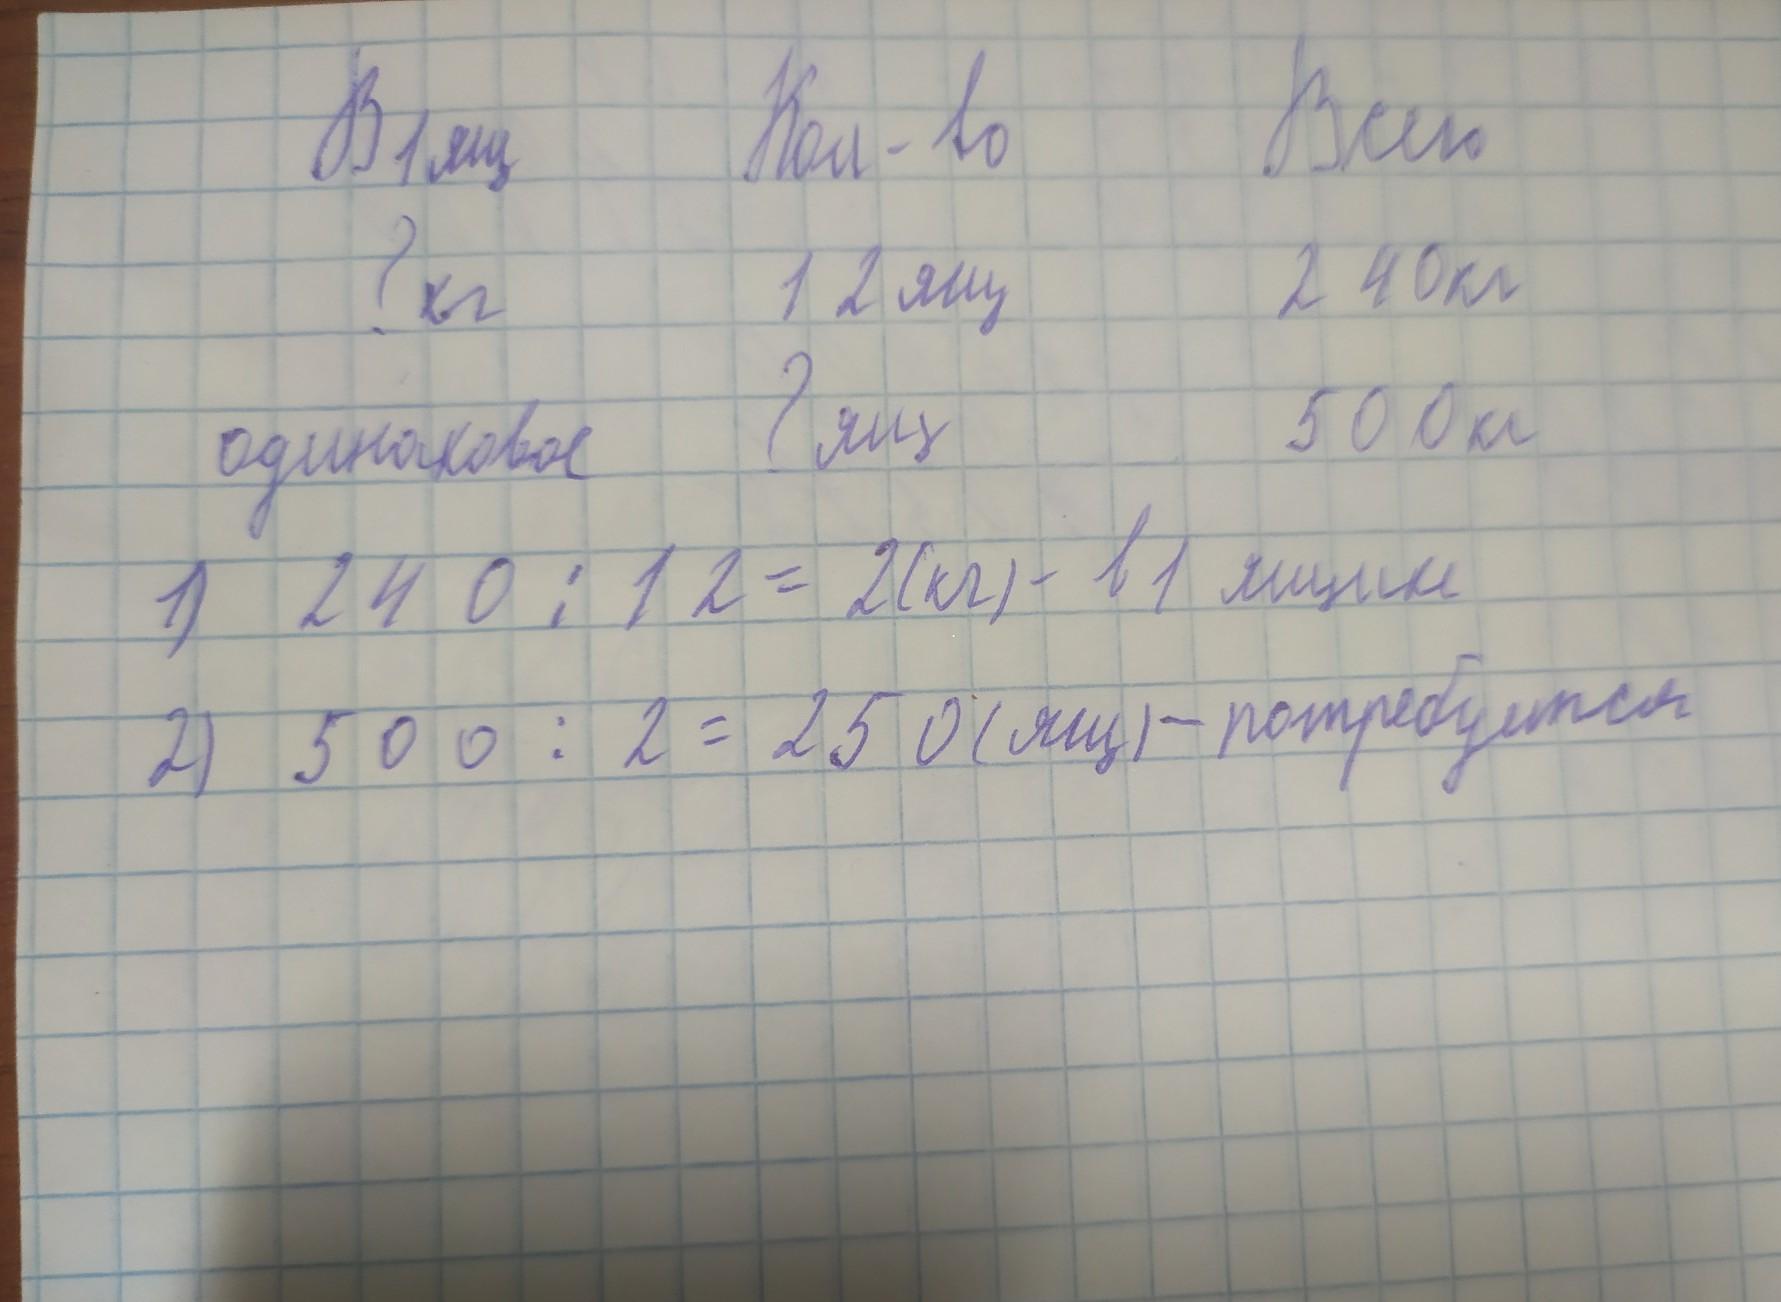 В 1 ящ Кол-во Всего
? кг 12 ящ 240 кг
одинаковое ? ящ 500 кг
1) 240 : 12 = 2 (кг) - в 1 ящике
2) 500 : 2 = 250 (ящ) - потребуется